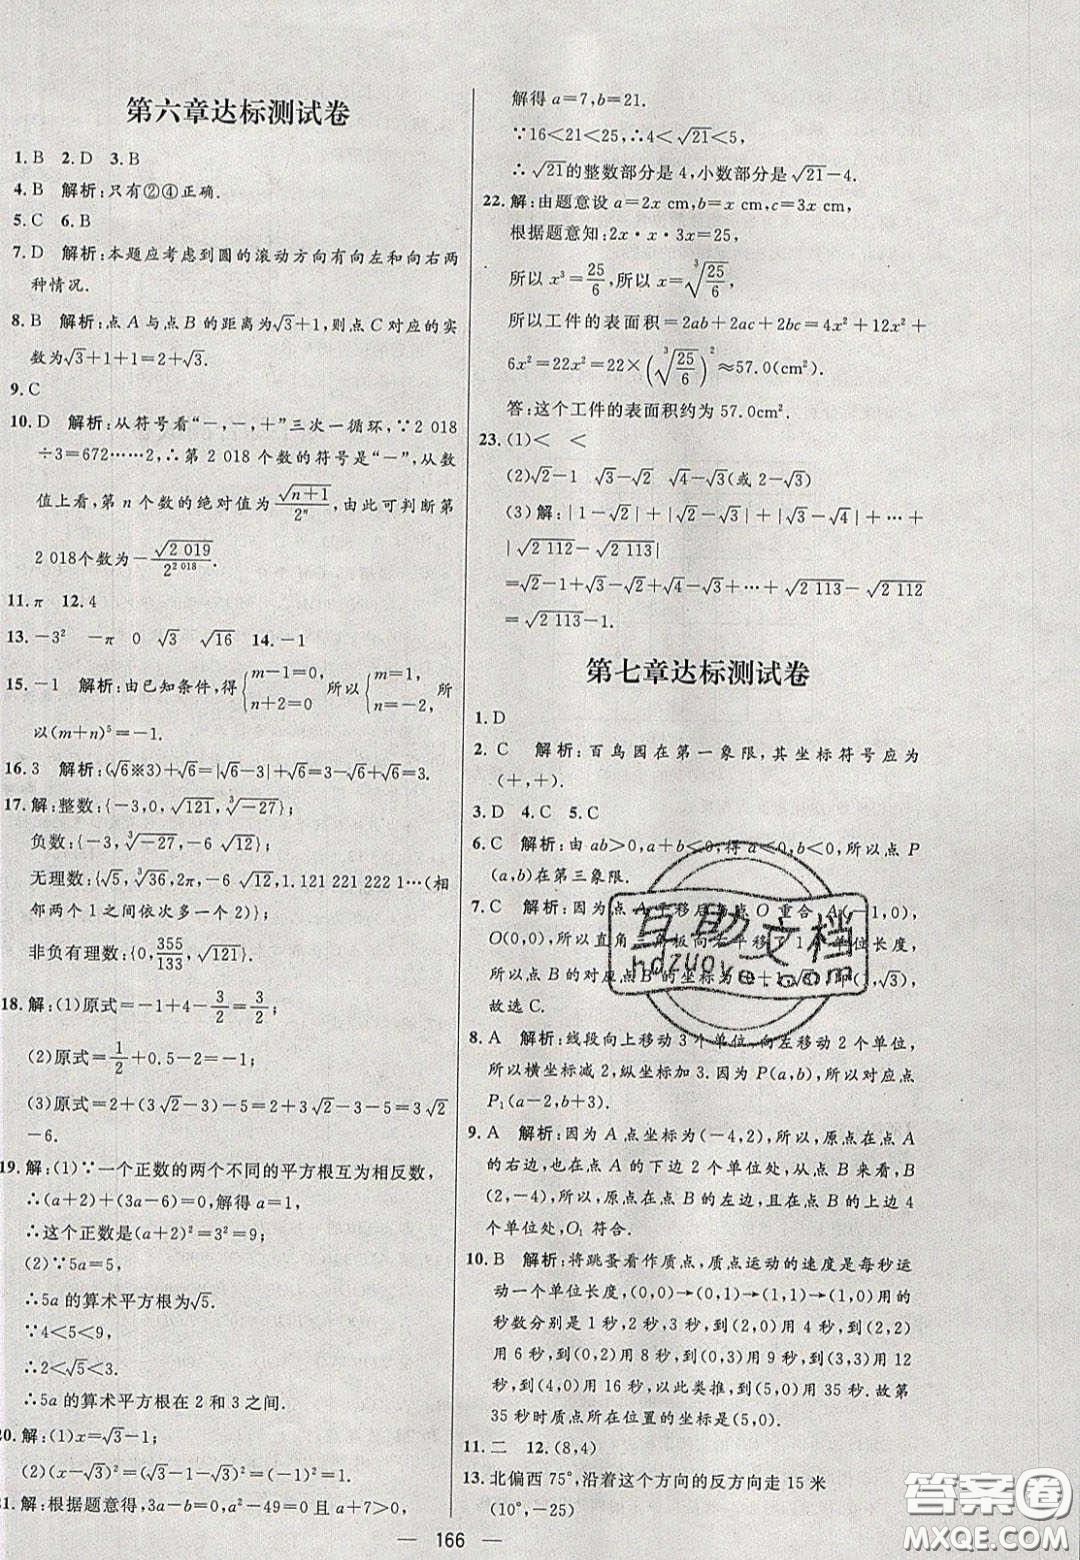 第六章达标测试卷
1.B 2.D 3.B
4.B 解析:只有②④正确.
5.C 6.B
7.D 解析:本题应考虑到圆的滚动方向有向左和向右两
种情况.
8.B 解析:点 A 与点 B 的距离为√3+1,则点 C 对应的实
数为√3+1+1=2+√3.
9.C
10.D 解析:从符号看“-,-,+”三次一循环,∵2 018
÷3=672……2,∴第 2 018 个数的符号是“-”,从数
值上看,第 n 个数的绝对值为√(n+1)/2ⁿ,由此可判断第
2 018个数为-√(2 019)/2^(2 018).
11.π 12.4
13.-3² -π 0 √3 √16 14.-1
15.-1 解析:由已知条件,得{m-1=0, n+2=0 所以{m=1, n=-2, 所
以(m+n)⁵=-1.
16.3 解析:(√6※3)+√6=|√6-3|+√6=3-√6+√6=3.
17.解:整数:{-3,0,√121,∛-27};
负数:{-3,∛-27,-6 √12};
无理数:{√5,∛36,2π,-6 √12,1.121 221 222 1…(相
邻两个 1 之间依次多一个 2)};
非负有理数:{0,355/133,√121}.
18.解:(1)原式=-1+4-3/2=3/2;
(2)原式=1/2+0.5-2=-1;
(3)原式=2+(3√2-3)-5=2+3√2-3-5=3√2
-6.
19.解:(1)∵一个正数的两个不同的平方根互为相反数,
∴(a+2)+(3a-6)=0,解得 a=1,
∴这个正数是(a+2)²=3²=9;
(2)∵5a=5,
∴5a 的算术平方根为√5.
∵4<5<9,
∴2<√5<3.
∴5a 的算术平方根在 2 和 3 之间.
20.解:(1)x=√3-1;
(2)(x-√3)²=(√3-1-√3)²=(-1)²=1.
21.解:根据题意得,3a-b=0,a²-49=0 且 a+7>0,
解得 a=7,b=21.
∵16<21<25,∴4<√21<5,
∴√21的整数部分是 4,小数部分是√21-4.
22.解:由题意设 a=2x cm,b=x cm,c=3x cm,
根据题意知:2x·x·3x=25,
所以 x³=25/6,所以 x=∛(25/6),
所以工件的表面积=2ab+2ac+2bc=4x²+12x²+
6x²=22x²=22×(∛(25/6))²≈57.0(cm²).
答:这个工件的表面积约为 57.0cm².
23.(1)< <
(2)√2-1 √3-√2 √4-√3(或 2-√3)
(3)解:|1-√2|+|√2-√3|+|√3-√4|+…+
|√2 112-√2 113|
=√2-1+√3-√2+√4-√3+…+√2 113-√2 112
=√2 113-1.
第七章达标测试卷
1.D
2.C 解析:百鸟园在第一象限,其坐标符号应为
(+,+).
3.D 4.C 5.C
6.C 解析:由 ab>0,a+b<0,得 a<0,b<0,所以点 P
(a,b)在第三象限.
7.C 解析:因为点 A 平移后与点 O 重合,A(-1,0),
O(0,0),所以直角三角板向右平移了 1 个单位长度,
所以点 B 的对应点 B′的坐标为(0+1,√3),即(1,√3),
故选 C.
8.A 解析:线段向上移动 3 个单位,向左移动 2 个单位,
所以横坐标减 2,纵坐标加 3.因为 P(a,b),所以对应点
P₁(a-2,b+3).
9.A 解析:因为 A 点坐标为(-4,2),所以,原点在点 A
的右边,也在点 A 的下边 2 个单位处,从点 B 来看,B
(2,-4),所以,原点在点 B 的左边,且在点 B 的上边 4
个单位处,O₁ 符合.
10.B 解析:将跳蚤看作质点,质点运动的速度是每秒运
动一个单位长度,(0,0)→(0,1)→(1,1)→(1,0)用的
秒数分别是 1 秒,2 秒,3 秒,到(2,0)用 4 秒,到(2,2)
用 6 秒,到(0,2)用 8 秒,到(0,3)用 9 秒,到(3,3)用 12
秒,到(4,0)用 16 秒,以此类推,到(5,0)用 35 秒.故第
35 秒时质点所在位置的坐标是(5,0).
11.二 12.(8,4)
13.北偏西 75°,沿着这个方向的反方向走 15 米
(10°,-25)
— 166 —
互助文档
hdzuoye.com
答案圈
MXQE.COM